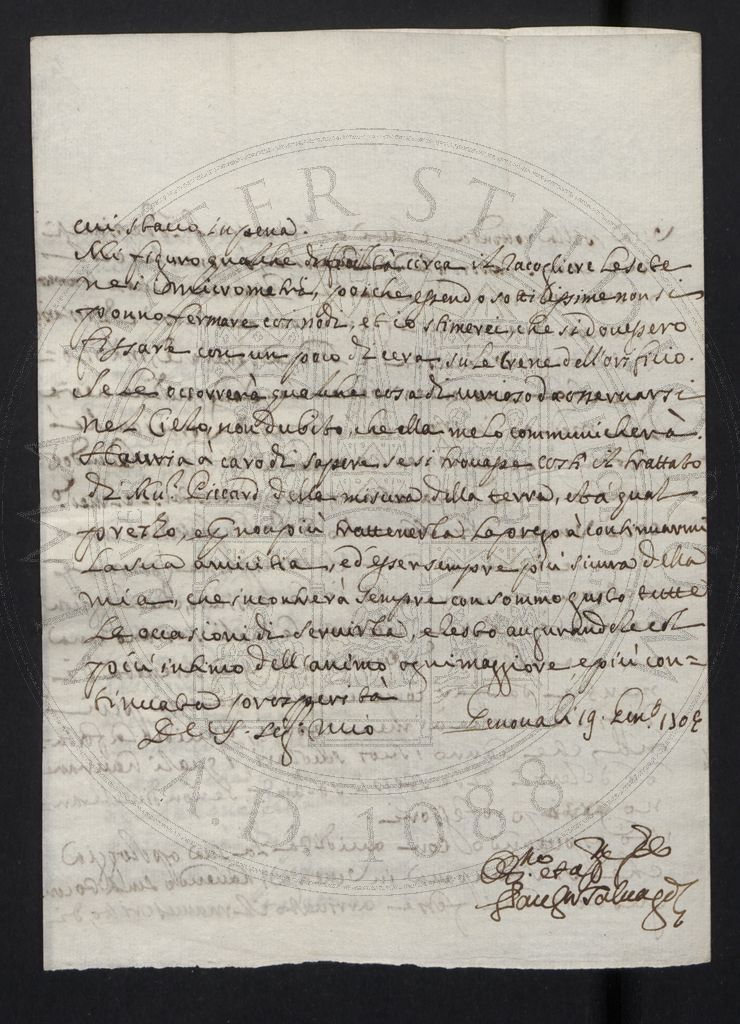 cui stacco in pena.
Mi figuro qualche difficoltà circa il racogliere le sete
nei Micrometri, poiche essendo sottilissime non si
ponno fermare coi nodi, et io stimerei, che si dovessero
fissare con un poco di cera, su le trene dell'orificio.
Se le occorrerà qualche cosa di curioso da osservarsi
nel Cielo, non dubito, che ella me lo communicherà.
Hauria à caro di sapere se si trovasse costì il trattato
di Mu.r Piccard della misura della terra, et à qual
prezzo, e per non più trattenerla la prego à continuarmi
la sua amicitia, ed esser sempre più sicura della
mia, che incontrerà sempre con sommo gusto tutte
le occasioni di servirla, e resto augurandole col
più intimo dell'animo ogni maggiore, e più con=
tinuata prosperità
Di V. S. Ill.ma mio Genova li 19. Gen.o 1702
et aff.mo
Salvago
MATER STUDIORUM
A.D. 1088